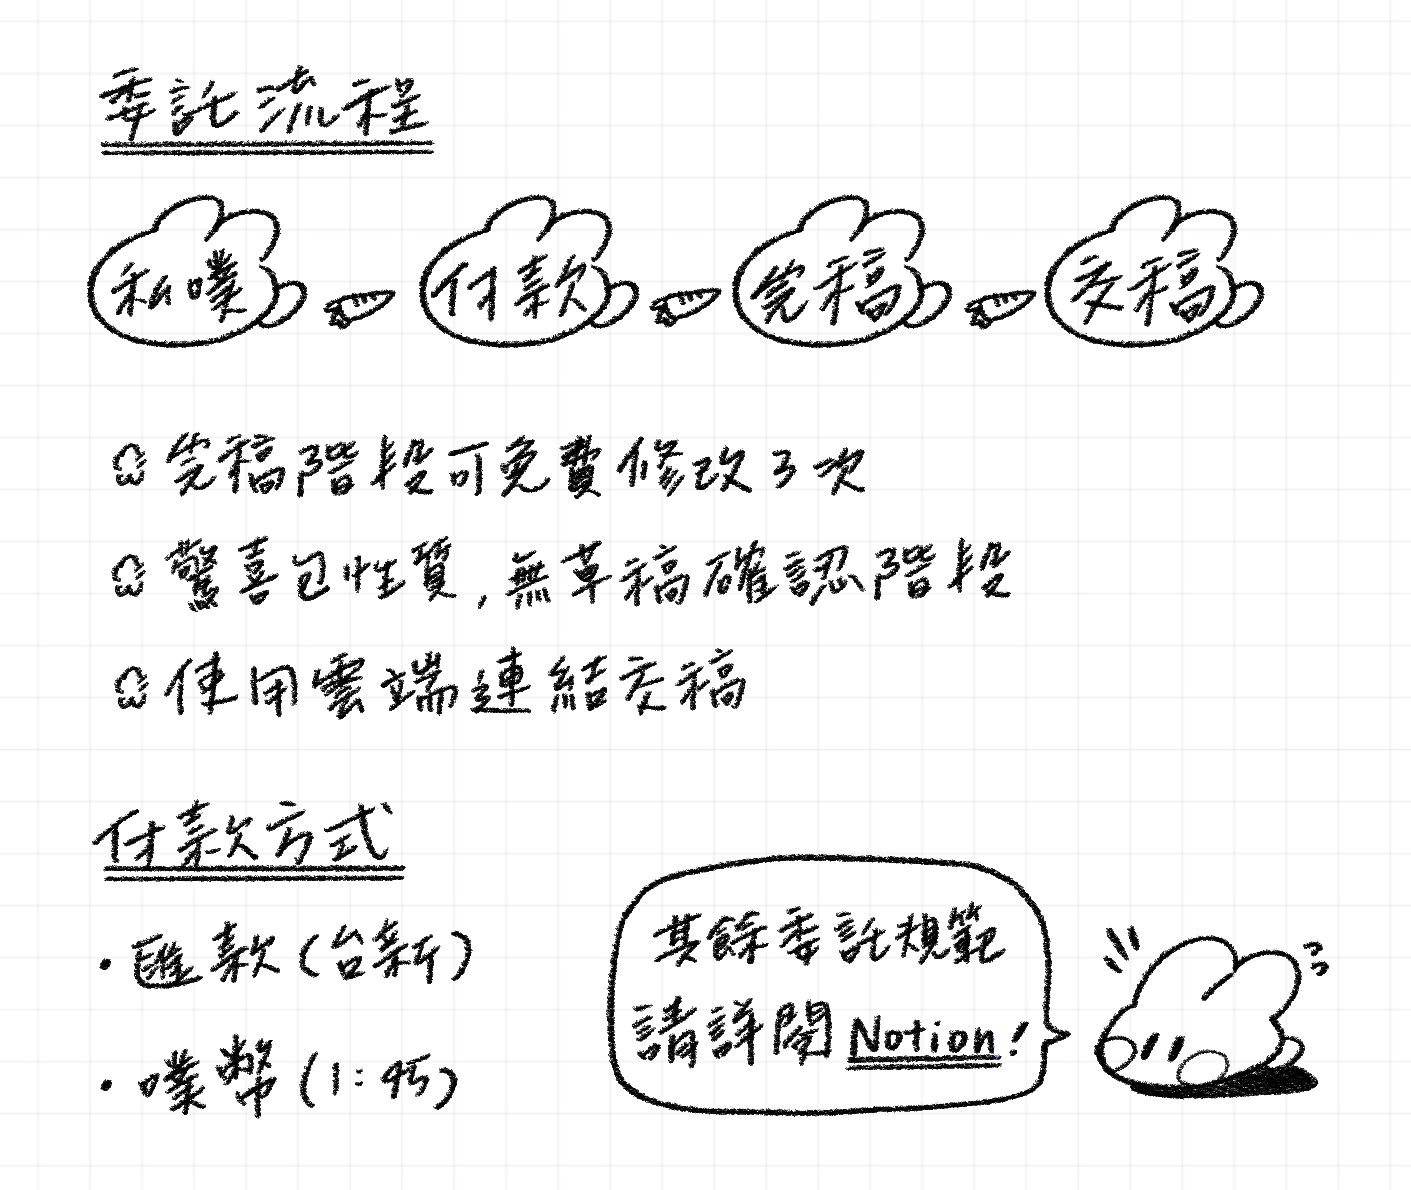 委託流程
私噗 付款 完稿 交稿
完稿階段可免費修改3次
驚喜包性質,無草稿確認階段
使用雲端連結交稿
付款方式
・匯款(台新)
・噗幣(1:45)
其餘委託規範
請詳閱Notion!